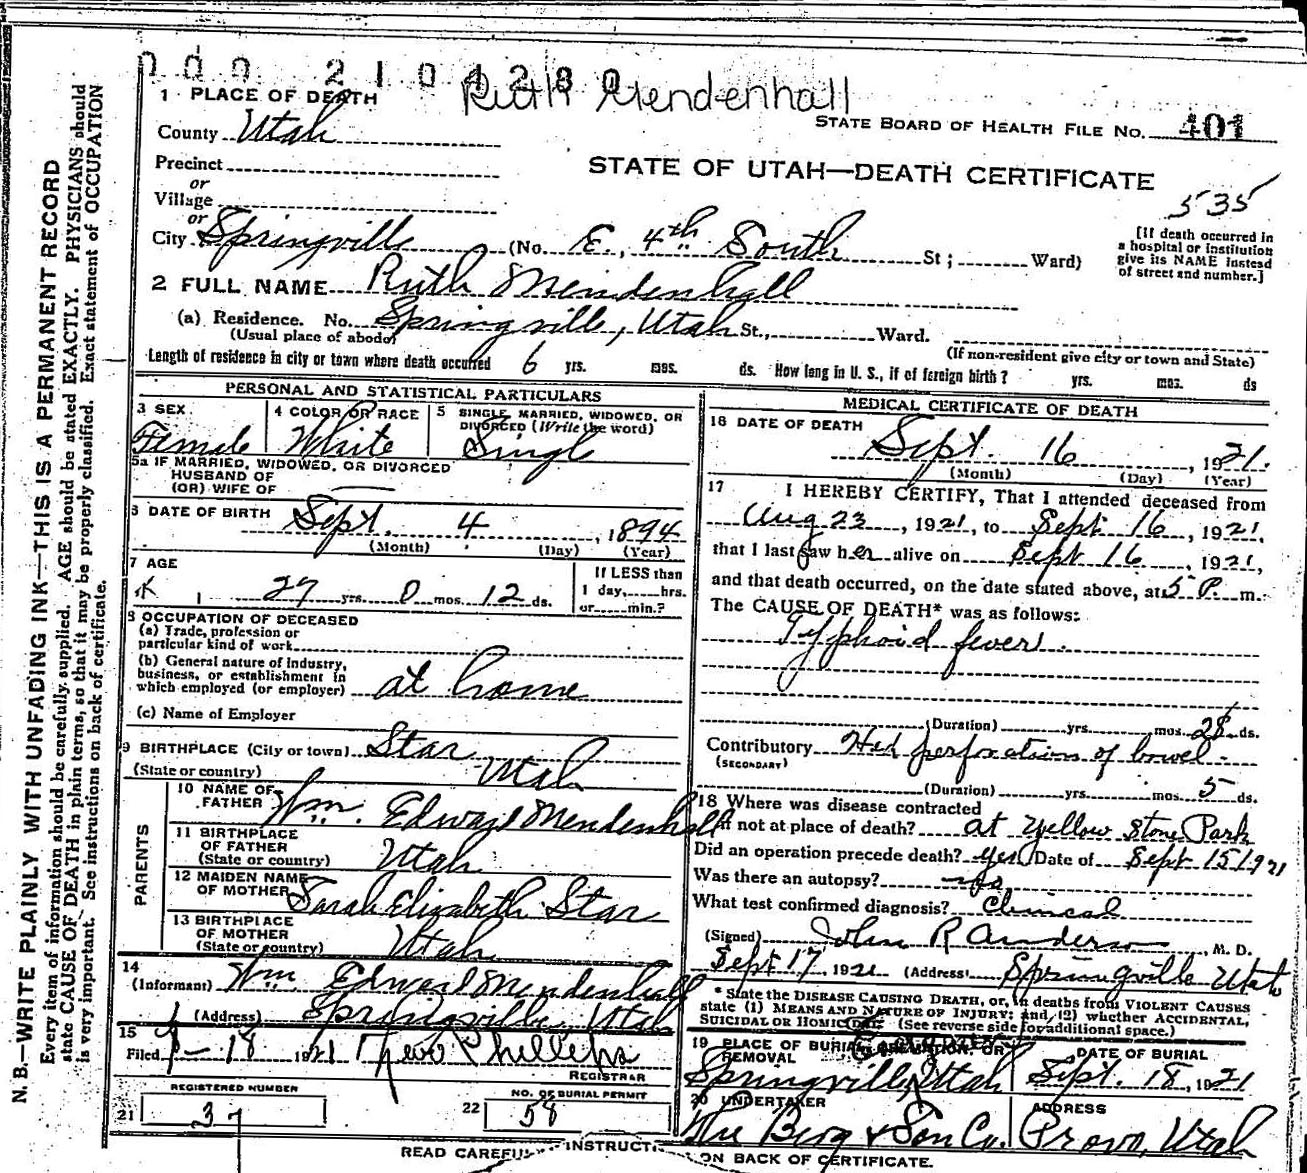 000 2104280
Ruth Mendenhall
1 PLACE OF DEATH
STATE BOARD OF HEALTH FILE NO. 401
County Utah
STATE OF UTAH—DEATH CERTIFICATE
Precinct
or
Village
535
or
City Springville (No. E. 4th South St; Ward)
[If death occurred in
a hospital or institution
give its NAME instead
of street and number.]
2 FULL NAME Ruth Mendenhall
(a) Residence. No. Springville, Utah St., Ward.
(Usual place of abode)
(If non-resident give city or town and State)
Length of residence in city or town where death occurred 6 yrs. mos. ds. How long in U. S., if of foreign birth? yrs. mos. ds
PERSONAL AND STATISTICAL PARTICULARS
3 SEX Female
4 COLOR OR RACE White
5 SINGLE, MARRIED, WIDOWED, OR
DIVORCED (Write the word)
Single
5a IF MARRIED, WIDOWED, OR DIVORCED
HUSBAND OF
(OR) WIFE OF
6 DATE OF BIRTH Sept. 4, 1894
(Month) (Day) (Year)
7 AGE
27 yrs. 0 mos. 12 ds.
If LESS than
1 day, hrs.
or min.?
8 OCCUPATION OF DECEASED
(a) Trade, profession or
particular kind of work
(b) General nature of industry,
business, or establishment in
which employed (or employer) at home
(c) Name of Employer
9 BIRTHPLACE (City or town) Star
(State or country) Utah
PARENTS
10 NAME OF
FATHER Wm. Edward Mendenhall
11 BIRTHPLACE
OF FATHER
(State or country) Utah
12 MAIDEN NAME
OF MOTHER Sarah Elizabeth Star
13 BIRTHPLACE
OF MOTHER
(State or country) Utah
14
(Informant) Wm Edward Mendenhall
(Address) Springville Utah
15
Filed 9-18 1921
REGISTRAR
REGISTERED NUMBER
21 37
NO. OF BURIAL PERMIT
22 58
MEDICAL CERTIFICATE OF DEATH
16 DATE OF DEATH
Sept. 16, 1921.
(Month) (Day) (Year)
17 I HEREBY CERTIFY, That I attended deceased from
Aug 23, 1921, to Sept 16, 1921,
that I last saw her alive on Sept 16, 1921,
and that death occurred, on the date stated above, at 5 P. m.
The CAUSE OF DEATH* was as follows:
Typhoid fever.
(Duration) yrs. mos. 28 ds.
Contributory Had perforation of bowel.
(SECONDARY)
(Duration) yrs. mos. 5 ds.
18 Where was disease contracted
if not at place of death? at Yellow Stone Park
Did an operation precede death? Yes Date of Sept 15 1921
Was there an autopsy?
What test confirmed diagnosis? Clinical
(Signed) John R Anderson M. D.
Sept 17, 1921 (Address) Springville Utah
* State the DISEASE CAUSING DEATH, or, in deaths from VIOLENT CAUSES
state (1) MEANS AND NATURE OF INJURY; and (2) whether ACCIDENTAL,
SUICIDAL OR HOMICIDAL (See reverse side for additional space.)
19 PLACE OF BURIAL, CREMATION, OR
REMOVAL
Springville, Utah
DATE OF BURIAL
Sept. 18, 1921
20 UNDERTAKER
The Berg & Son Co.
ADDRESS
Provo, Utah
READ CAREFULLY INSTRUCTIONS ON BACK OF CERTIFICATE.
N. B.—WRITE PLAINLY WITH UNFADING INK—THIS IS A PERMANENT RECORD
Every item of information should be carefully supplied. AGE should be stated EXACTLY. PHYSICIANS should
state CAUSE OF DEATH in plain terms, so that it may be properly classified. Exact statement of OCCUPATION
is very important. See instructions on back of certificate.